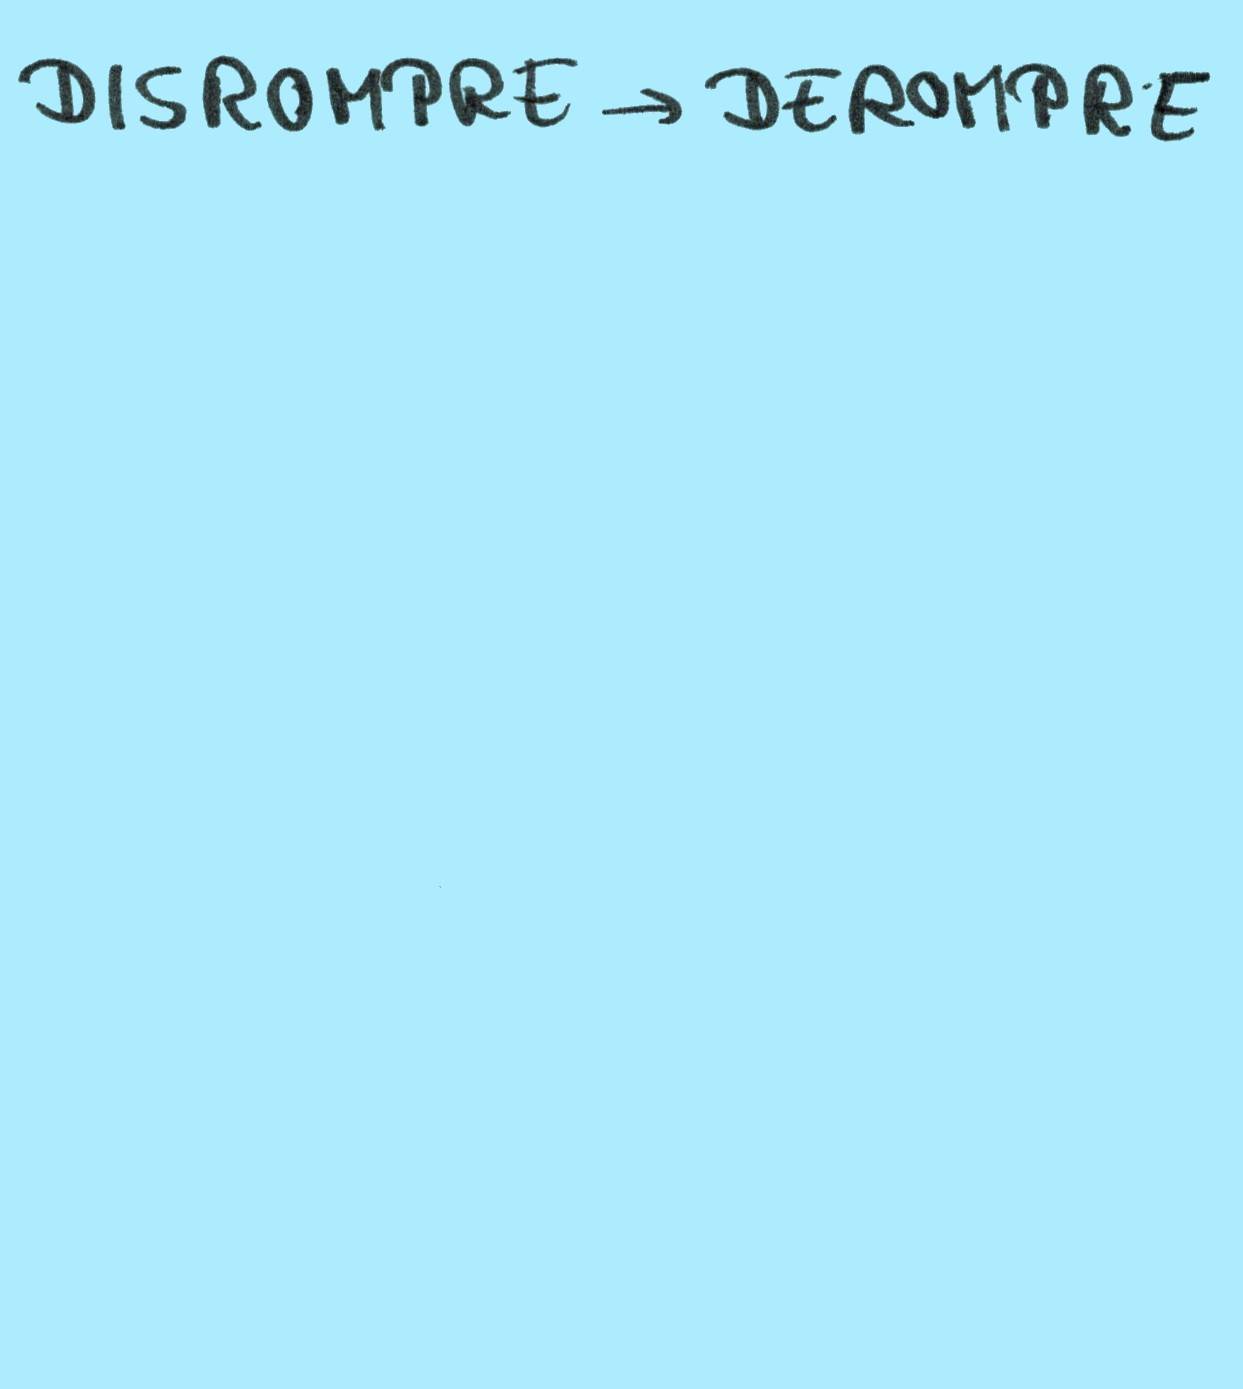 DISROMPRE → DEROMPRE